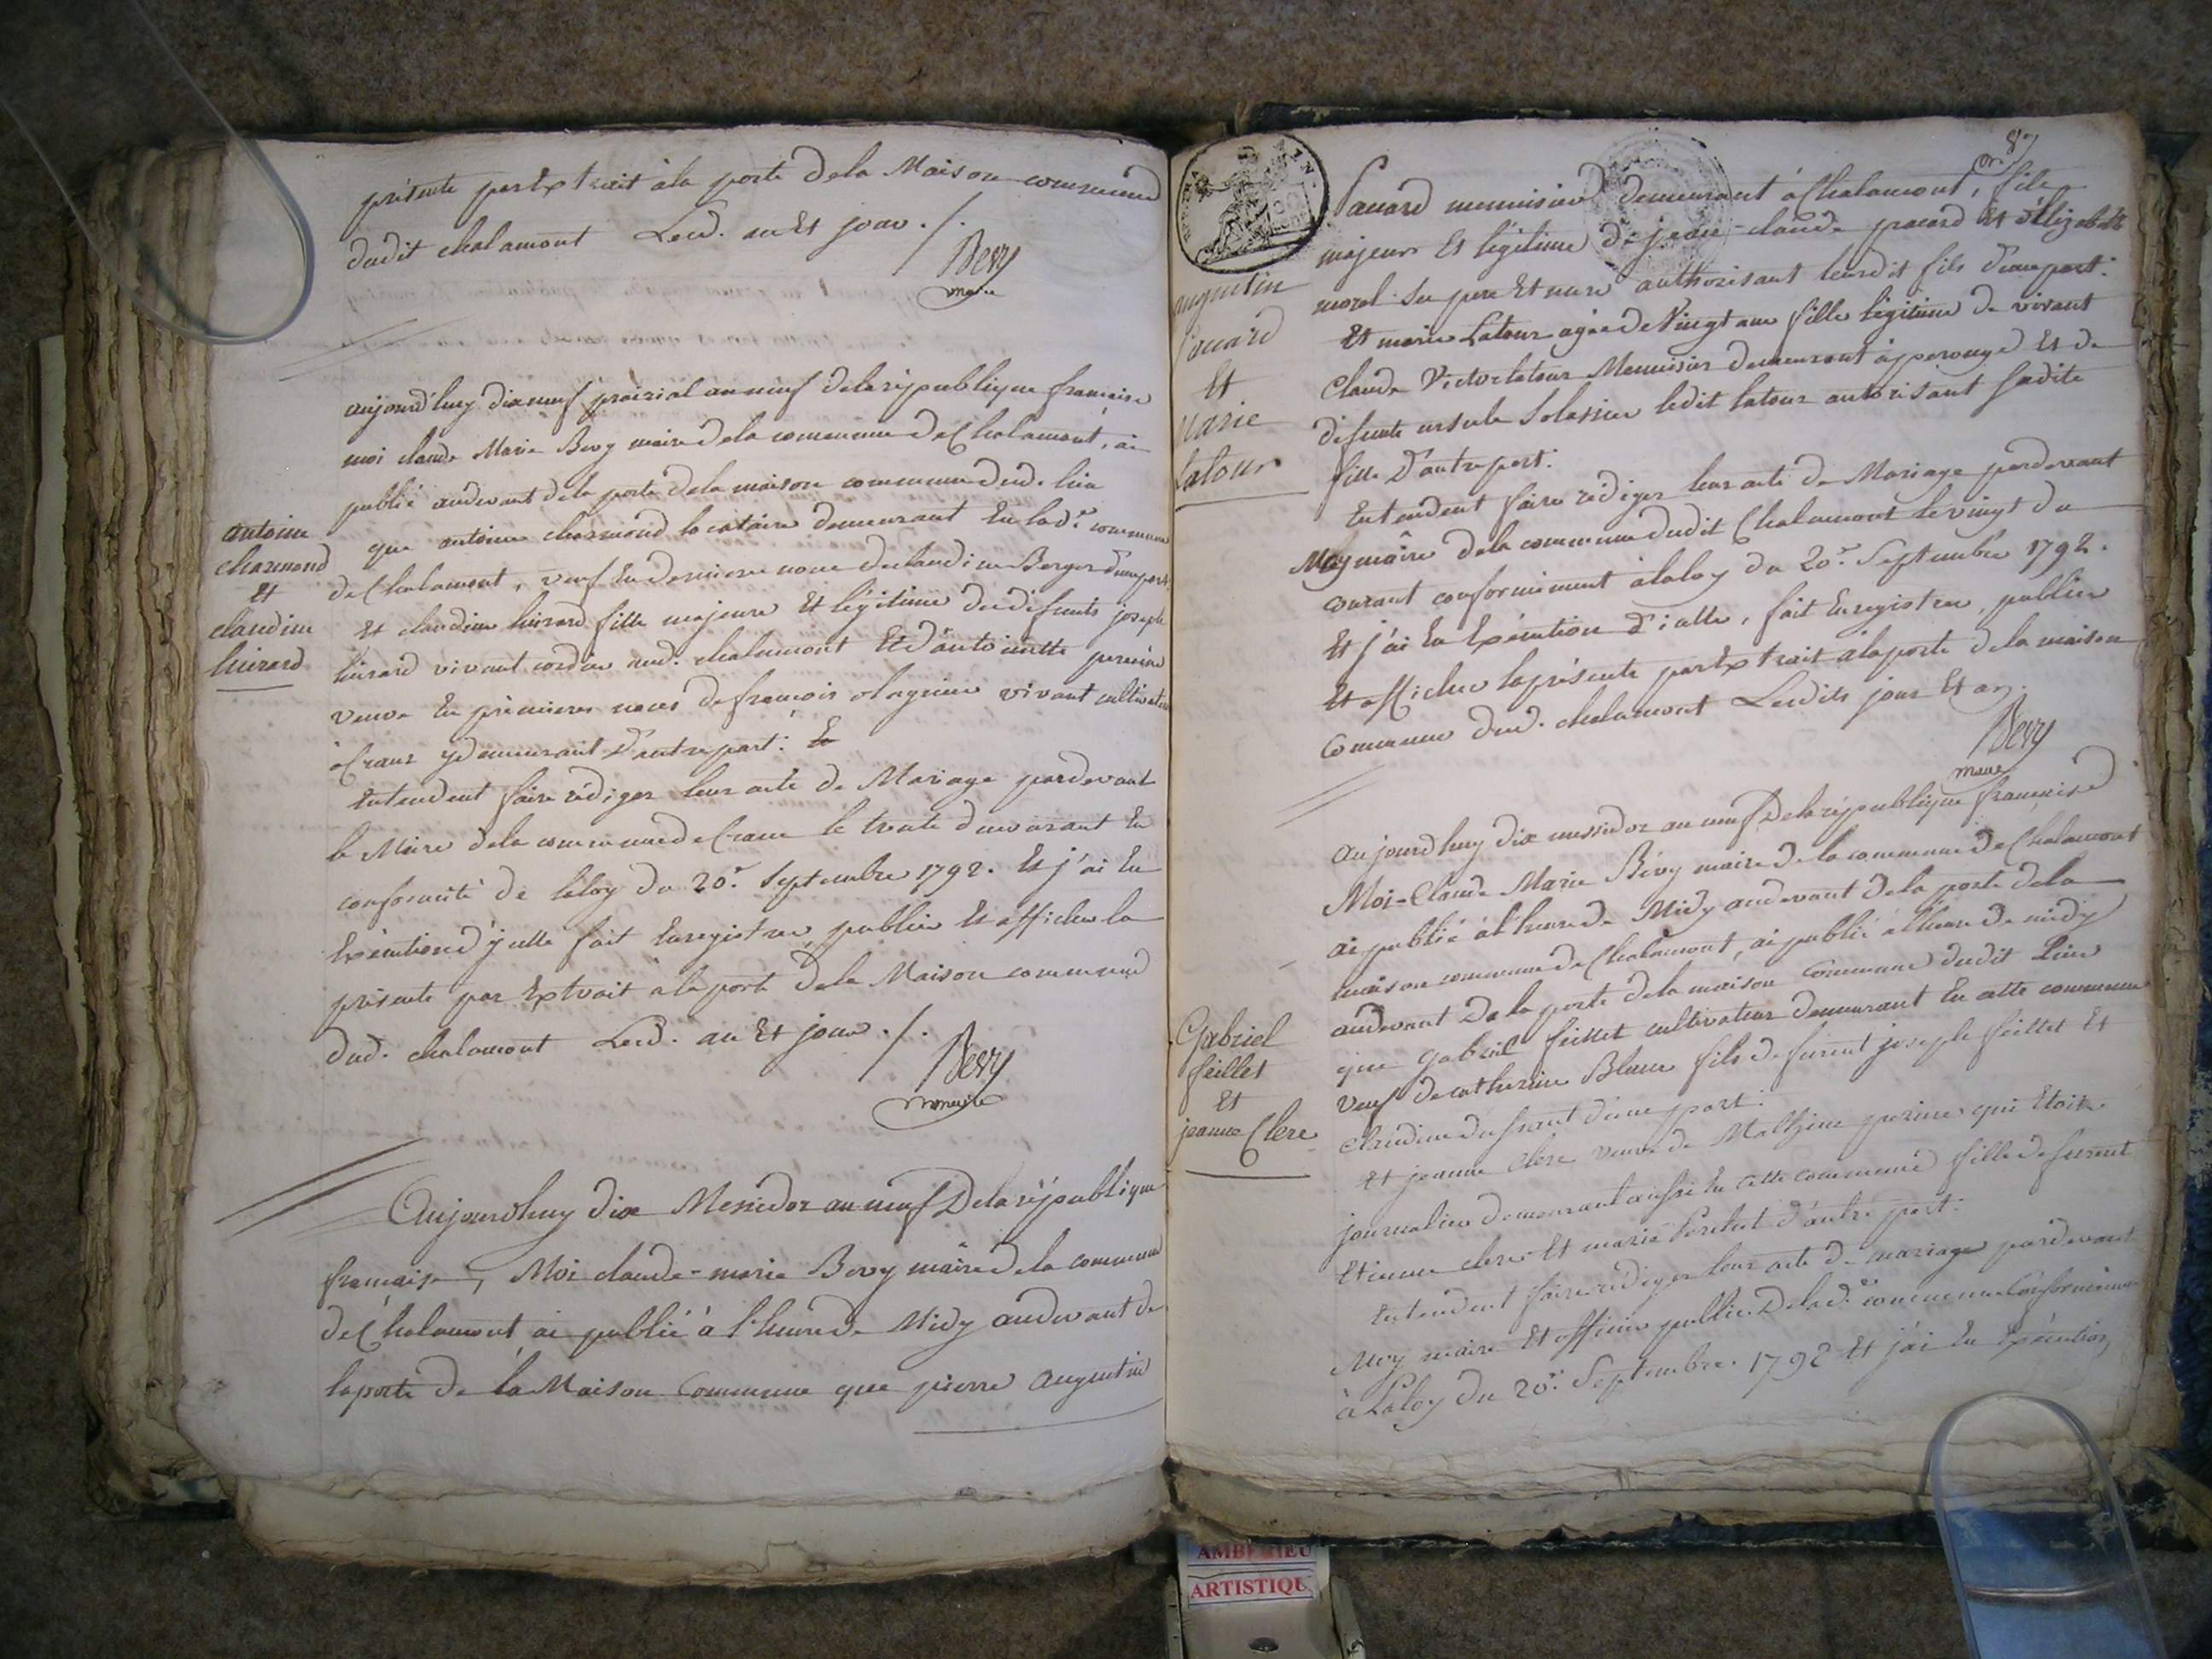 présente par Extrait à la porte de la Maison commune
dudit chalamont Lesd. an Et jour ./.
Bevy
maire
aujourd'huy dix neuf prairial an neuf de la république française
moi claude Marie Bevy maire de la commune de Chalamont, ai
publié audevant de la porte de la maison commune dud. lieu
antoine
charmond
Et
claudine
huirard
que antoine charmond locataire demeurant En lad.e commune
de Chalamont, veuf En derniere noce de claudine Berger d'une part
Et claudine huirard fille majeure Et légitime de défunts joseph
huirard vivant aud. chalamont Et d'antoinette
veuve En premieres noces de françois vivant cultivateur
à Crans y demeurant D'autre part:
Entendent faire rédiger leur acte de Mariage pardevant
le Maire de la commune de Crans le trente du courant En
conformité de la loy du 20.e Septembre 1792. Et j'ai En
Exécution d'ycelle fait Enregistrer, publier Et afficher la
présente par Extrait à la porte de la Maison commune
dud. chalamont Lesd. an Et jour ./.
Bevy
maire
Aujourdhuy dix Messidor an neuf De la république
française, Moi claude-marie Bevy maire de la commune
de Chalamont ai publié à l'heure de Midy audevant de
la porte de la Maison Commune que pierre Augustin
87
augustin
Et
Marie
Latour
menuisier demeurant à Chalamont, fils
majeur Et légitime de jean-claude Et d'Elizabeth
morel ses pere Et mere authorisant leurdit fils d'une part:
Et marie Latour agée de Vingt ans fille légitime de vivant
Claude Victor latour Menuisier demeurant à perouge Et de
défunte ursule ledit latour autorisant sadite
fille D'autre part:
Entendent faire rédiger leur acte de Mariage pardevant
Moy maire de la commune dudit Chalamont le vingt du
courant conformément à la loy du 20.e Septembre 1792.
Et j'ai En Exécution d'icelle, fait Enregistrer, publier
Et afficher la présente par Extrait à la porte de la maison
Commune dud. chalamont Lesdits jour Et an.
Bevy
maire
Aujourdhuy dix messidor an neuf De la république française
Moi-Claude Marie Bevy maire de la commune de Chalamont
ai publié à l'heure de Midy audevant de la porte de la
maison commune de Chalamont, ai publié à l'heure de midy
audevant De la porte de la maison Commune dudit Lieu
Gabriel
feillet
Et
jeanne Clere
que gabriel feillet cultivateur demeurant En cette commune
veuf de catherine Blanc fils de furent joseph feillet Et
claudine dufrant d'une part:
Et jeanne Clere veuve de Mathieu qui Etoit
journalier demeurant aussi En cette commune fille de furent
Etienne clere Et marie d'autre part:
Entendent faire rédiger leur acte de mariage pardevant
Moy maire Et officier public De lad.e commune Conformément
à La loy du 20.e Septembre 1792 Et j'ai En Exécution
AMBERIEU
ARTISTIQU